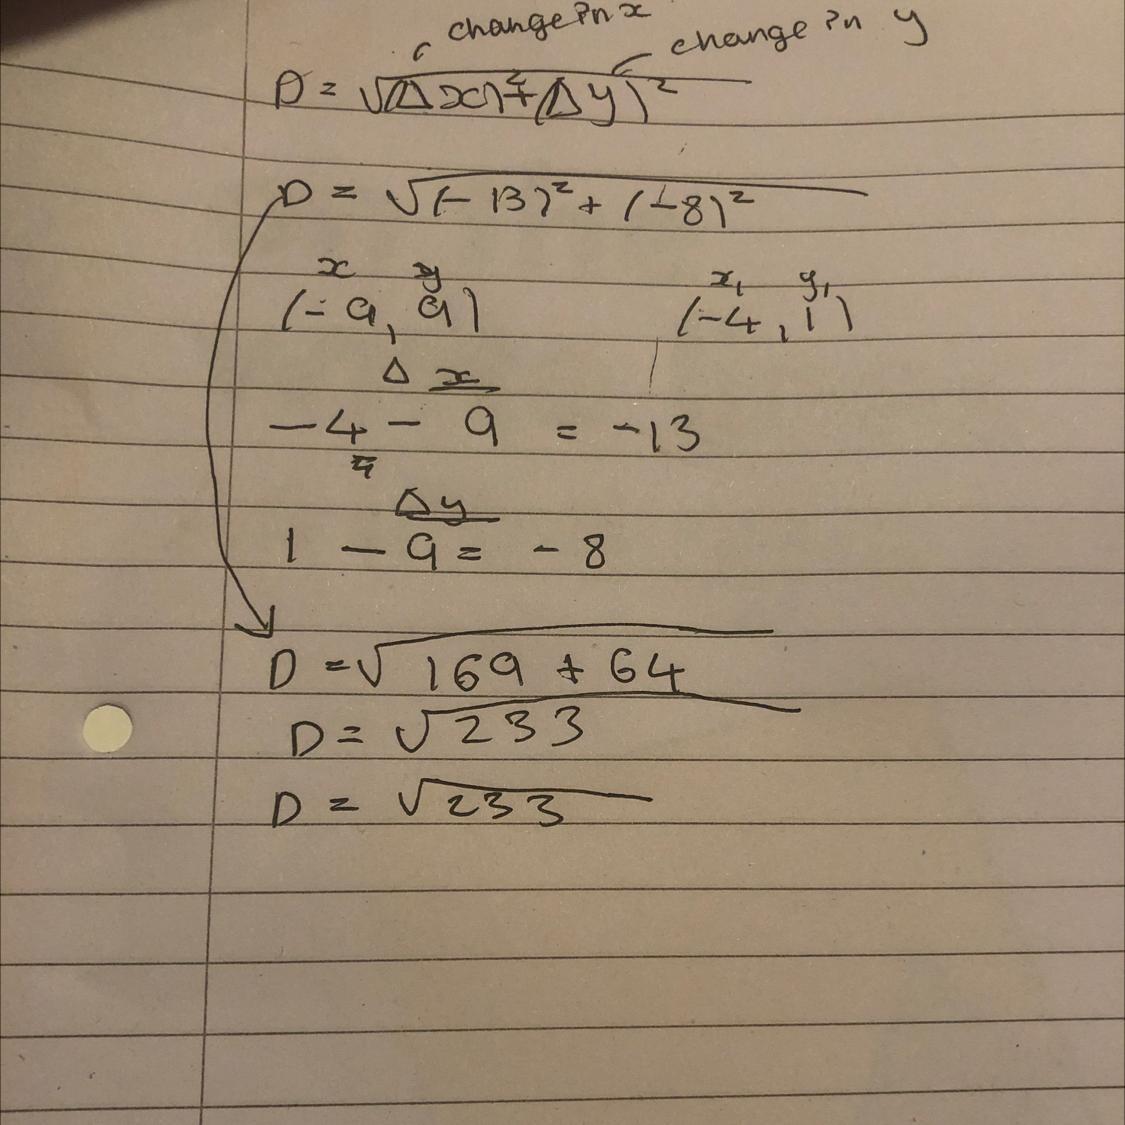 change in x
change in y
D = √(Δx)²+(Δy)²
D = √(-13)² + (-8)²
x y x₁ y₁
(-9, 9) (-4, 1)
Δx
-4 - 9 = -13
Δy
1 - 9 = -8
D = √169 + 64
D = √233
D = √233